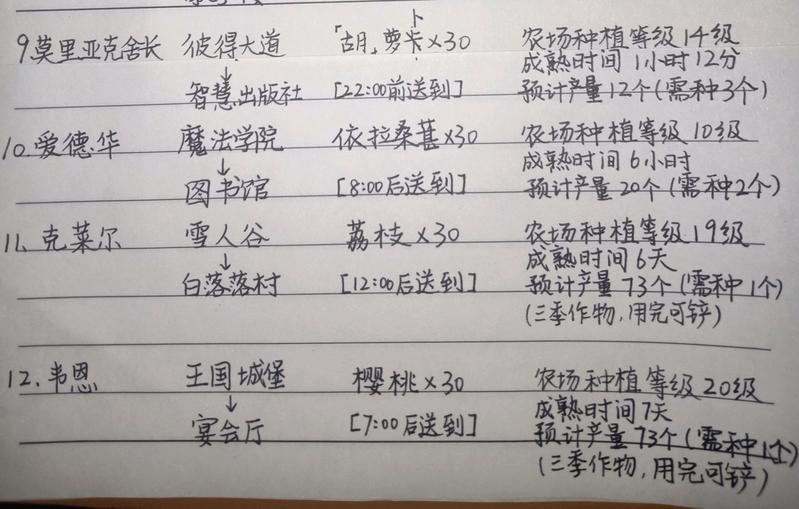 9.莫里亚克舍长 彼得大道 「胡」萝卜×30 农场种植等级14级
↓ 成熟时间 1小时12分
智慧出版社 [22:00前送到] 预计产量12个(需种3个)
10.爱德华 魔法学院 依拉桑葚×30 农场种植等级10级
↓ 成熟时间 6小时
图书馆 [8:00后送到] 预计产量20个(需种2个)
11.克莱尔 雪人谷 荔枝×30 农场种植等级19级
↓ 成熟时间 6天
白落落村 [12:00后送到] 预计产量73个(需种1个)
(三季作物,用完可铲)
12.韦恩 王国城堡 樱桃×30 农场种植等级20级
↓ 成熟时间7天
宴会厅 [7:00后送到] 预计产量73个(需种1个)
(三季作物,用完可铲)